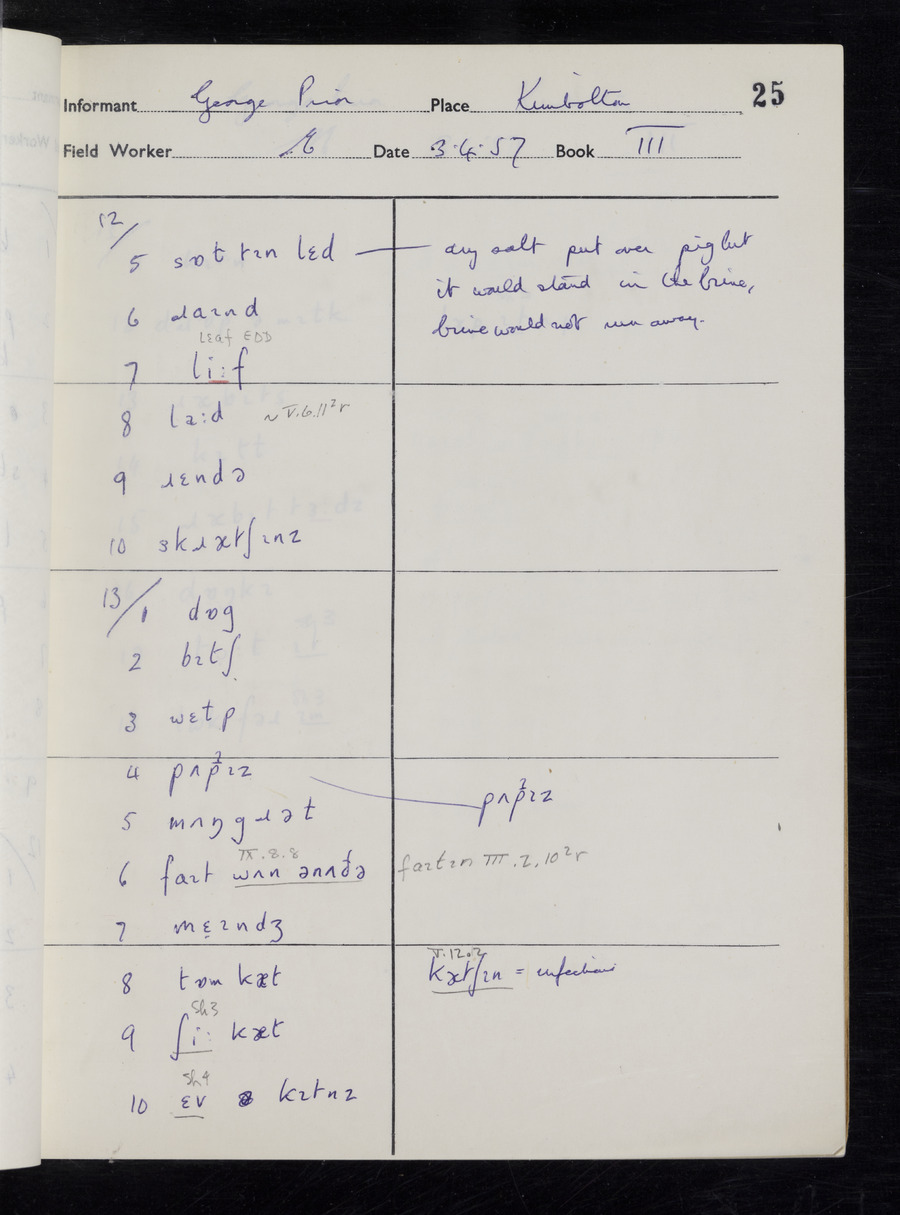 Informant George Prior Place Kimbolton 25
Field Worker Date 3.4.57 Book III
12/
5 sɒt tɪn lɛd — any salt put over pig but
it would stand in the brine,
brine would not run away.
6 ɹaɪnd
leaf EDD
7 liːf
8 laːd ~ V.6.11²r
9 ɹɛndə
10 skɹætʃɪnz
13/1 dɒg
2 bɪtʃ
3 wɛtp
4 pʌp̓ɪz pʌp̓ɪz
5 mʌŋgɹət
IX.8.8
6 faɪt wʌn ənʌðə faɪtɪn III.2.10²r
7 mɛɪndʒ
V.12.2
8 tɒm kæt kætʃɪn = infectious
Sh3
9 ʃiː kæt
Sh4
10 ɛv kɪtnz